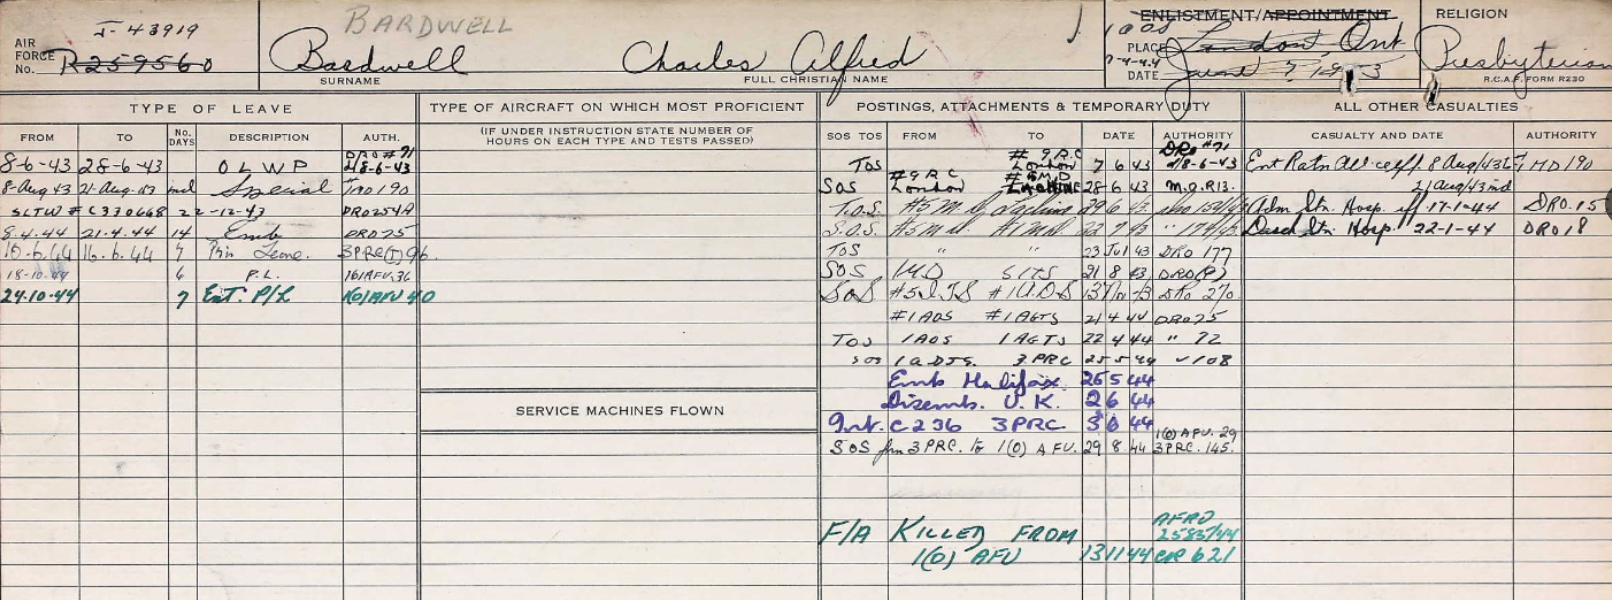 J-43919
BARDWELL
AIR FORCE No. R259560
Bardwell Charles Alfred
SURNAME
FULL CHRISTIAN NAME
ENLISTMENT/APPOINTMENT
PLACE London, Ont.
DATE June 7 1943
RELIGION
Presbyterian
R.C.A.F. FORM R230
TYPE OF LEAVE
FROM TO No. DAYS DESCRIPTION AUTH.
DRO #71
8-6-43 28-6-43 OLWP d/8-6-43
8-Aug 43 21-Aug-43 incl Special DRO 190
SLTW # C330668 22-12-43 DRO254A
8.4.44 21.4.44 14 Emb DRO25
10.6.44 16.6.44 7 Priv Leave. 3PRC(T)96.
18-10-44 6 P.L. 161AFU.36
24.10-44 7 Ext. P/L 40
TYPE OF AIRCRAFT ON WHICH MOST PROFICIENT
(IF UNDER INSTRUCTION STATE NUMBER OF
HOURS ON EACH TYPE AND TESTS PASSED)
SERVICE MACHINES FLOWN
POSTINGS, ATTACHMENTS & TEMPORARY DUTY
SOS TOS FROM TO DATE AUTHORITY
# 9 R.C DRO #71
TOS London 7 6 43 d/8-6-43
#9 R C #5 M.D
SOS London Lachine 28 6 43 M.O.R13.
T.O.S. #5 M.D. Lachine 29 6 43
S.O.S. #5 M.D. #1 M.D 23 7 43
TOS " " 23 Jul 43 DRO 177
SOS 1M.D 5ITS 21 8 43 DRO(P)
SOS #5 I.T.S #1 A.O.S 13 Nov 43 DRO 270
#1 AOS #1 AGTS 21 4 44 DRO25
TOS 1 AOS 1 AGTS 22 4 44 " 72
SOS 3 PRC 25 5 44 108
Emb Halifax 26 5 44
Disemb. U.K. 2 6 44
Int. C236 3PRC 3 6 44
1(O) AFU. 29
SOS fm 3 PRC. to 1(O) AFU. 29 8 44 3PRC. 145.
F/A KILLED FROM
1(O) AFU 13 11 44 CAR 621
AFRO
2583/44
ALL OTHER CASUALTIES
CASUALTY AND DATE AUTHORITY
Ent Ratn All-ce eff. 8 Aug/43 to 1 MD 190
21 Aug/43 incl
Adm Stn. Hosp. eff 17-1-44 DRO.15
Disch Stn Hosp. 22-1-44 DRO 18